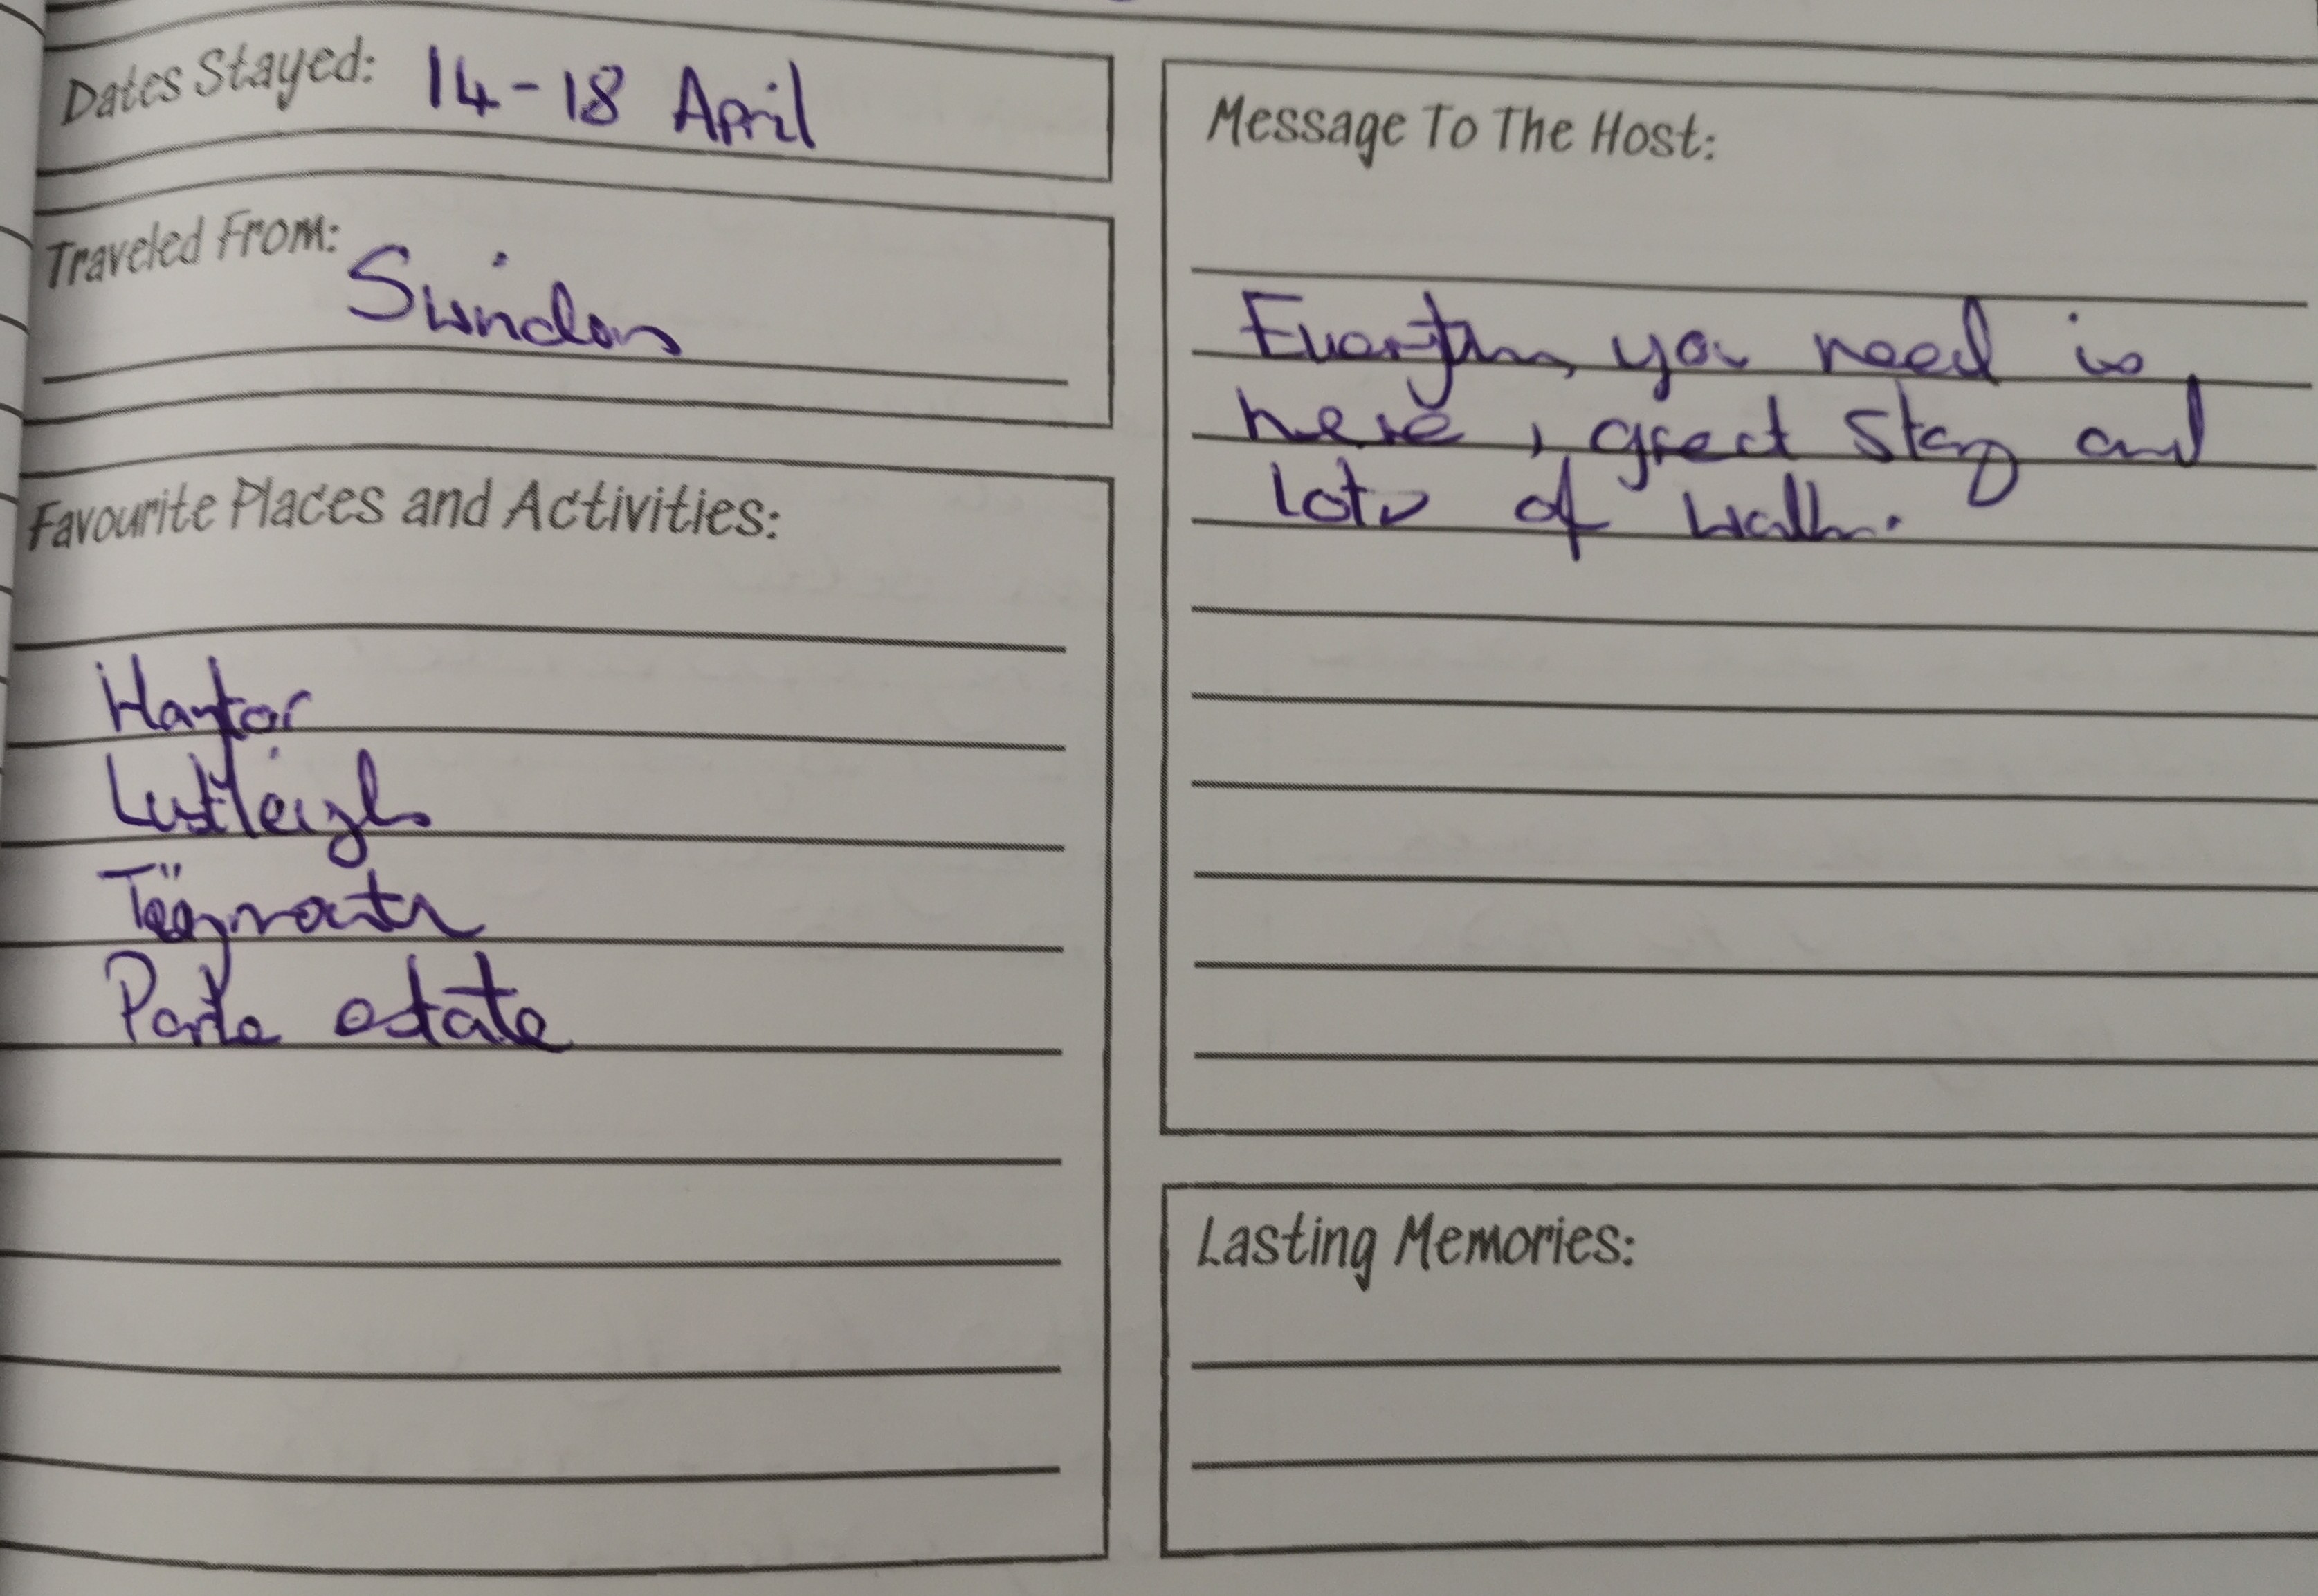 Dates Stayed: 14-18 April
Traveled From:
Swindon
Favourite Places and Activities:
Haytor
Lustleigh
Teignmouth
Parke estate
Message To The Host:
Everything you need is
here, great stay and
lots of walks.
Lasting Memories: